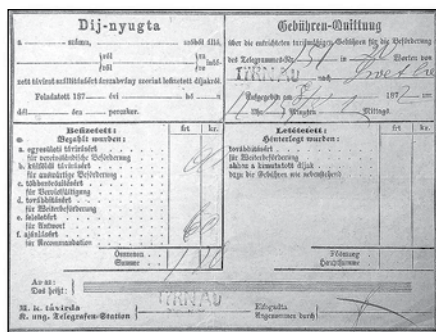 Dij-nyugta
a számu, szóból álló,
ről
ról
re
ra
inté-
zett távirat szállitásáért árszabvány szerint lefizetett díjakról.
Feladatott 187 évi hó n
dél perczkor.
Gebühren-Quittung
über die entrichteten tarifmäßigen Gebühren für die Beförderung
des Telegrammes Nr. 151 in 20 Worten von
TIRNAU nach
Aufgegeben am 187
Uhr Minuten Mittags.
Befizetett:
Bezahlt wurden:
frt kr.
a. egyesületi táviratért
für vereinsländische Beförderung
b. külföldi táviratért
für auswärtige Beförderung
c. többszörözésért
für Vervielfältigung
d. továbbitásért
für Weiterbeförderung
e. feleletért
für Antwort
60
f. ajánlásért
für Recommandation
Összesen
Summe
Letétetett:
Hinterlegt wurden:
frt kr.
továbbitásért
für Weiterbeförderung
ahhoz a kimutatott díjak
dazu die Gebühren wie nebenstehend
Főösszeg
Hauptsumme
Az az:
Das heißt:
TIRNAU
M. k. távirda
K. ung. Telegrafen-Station
Elfogadta
Angenommen durch